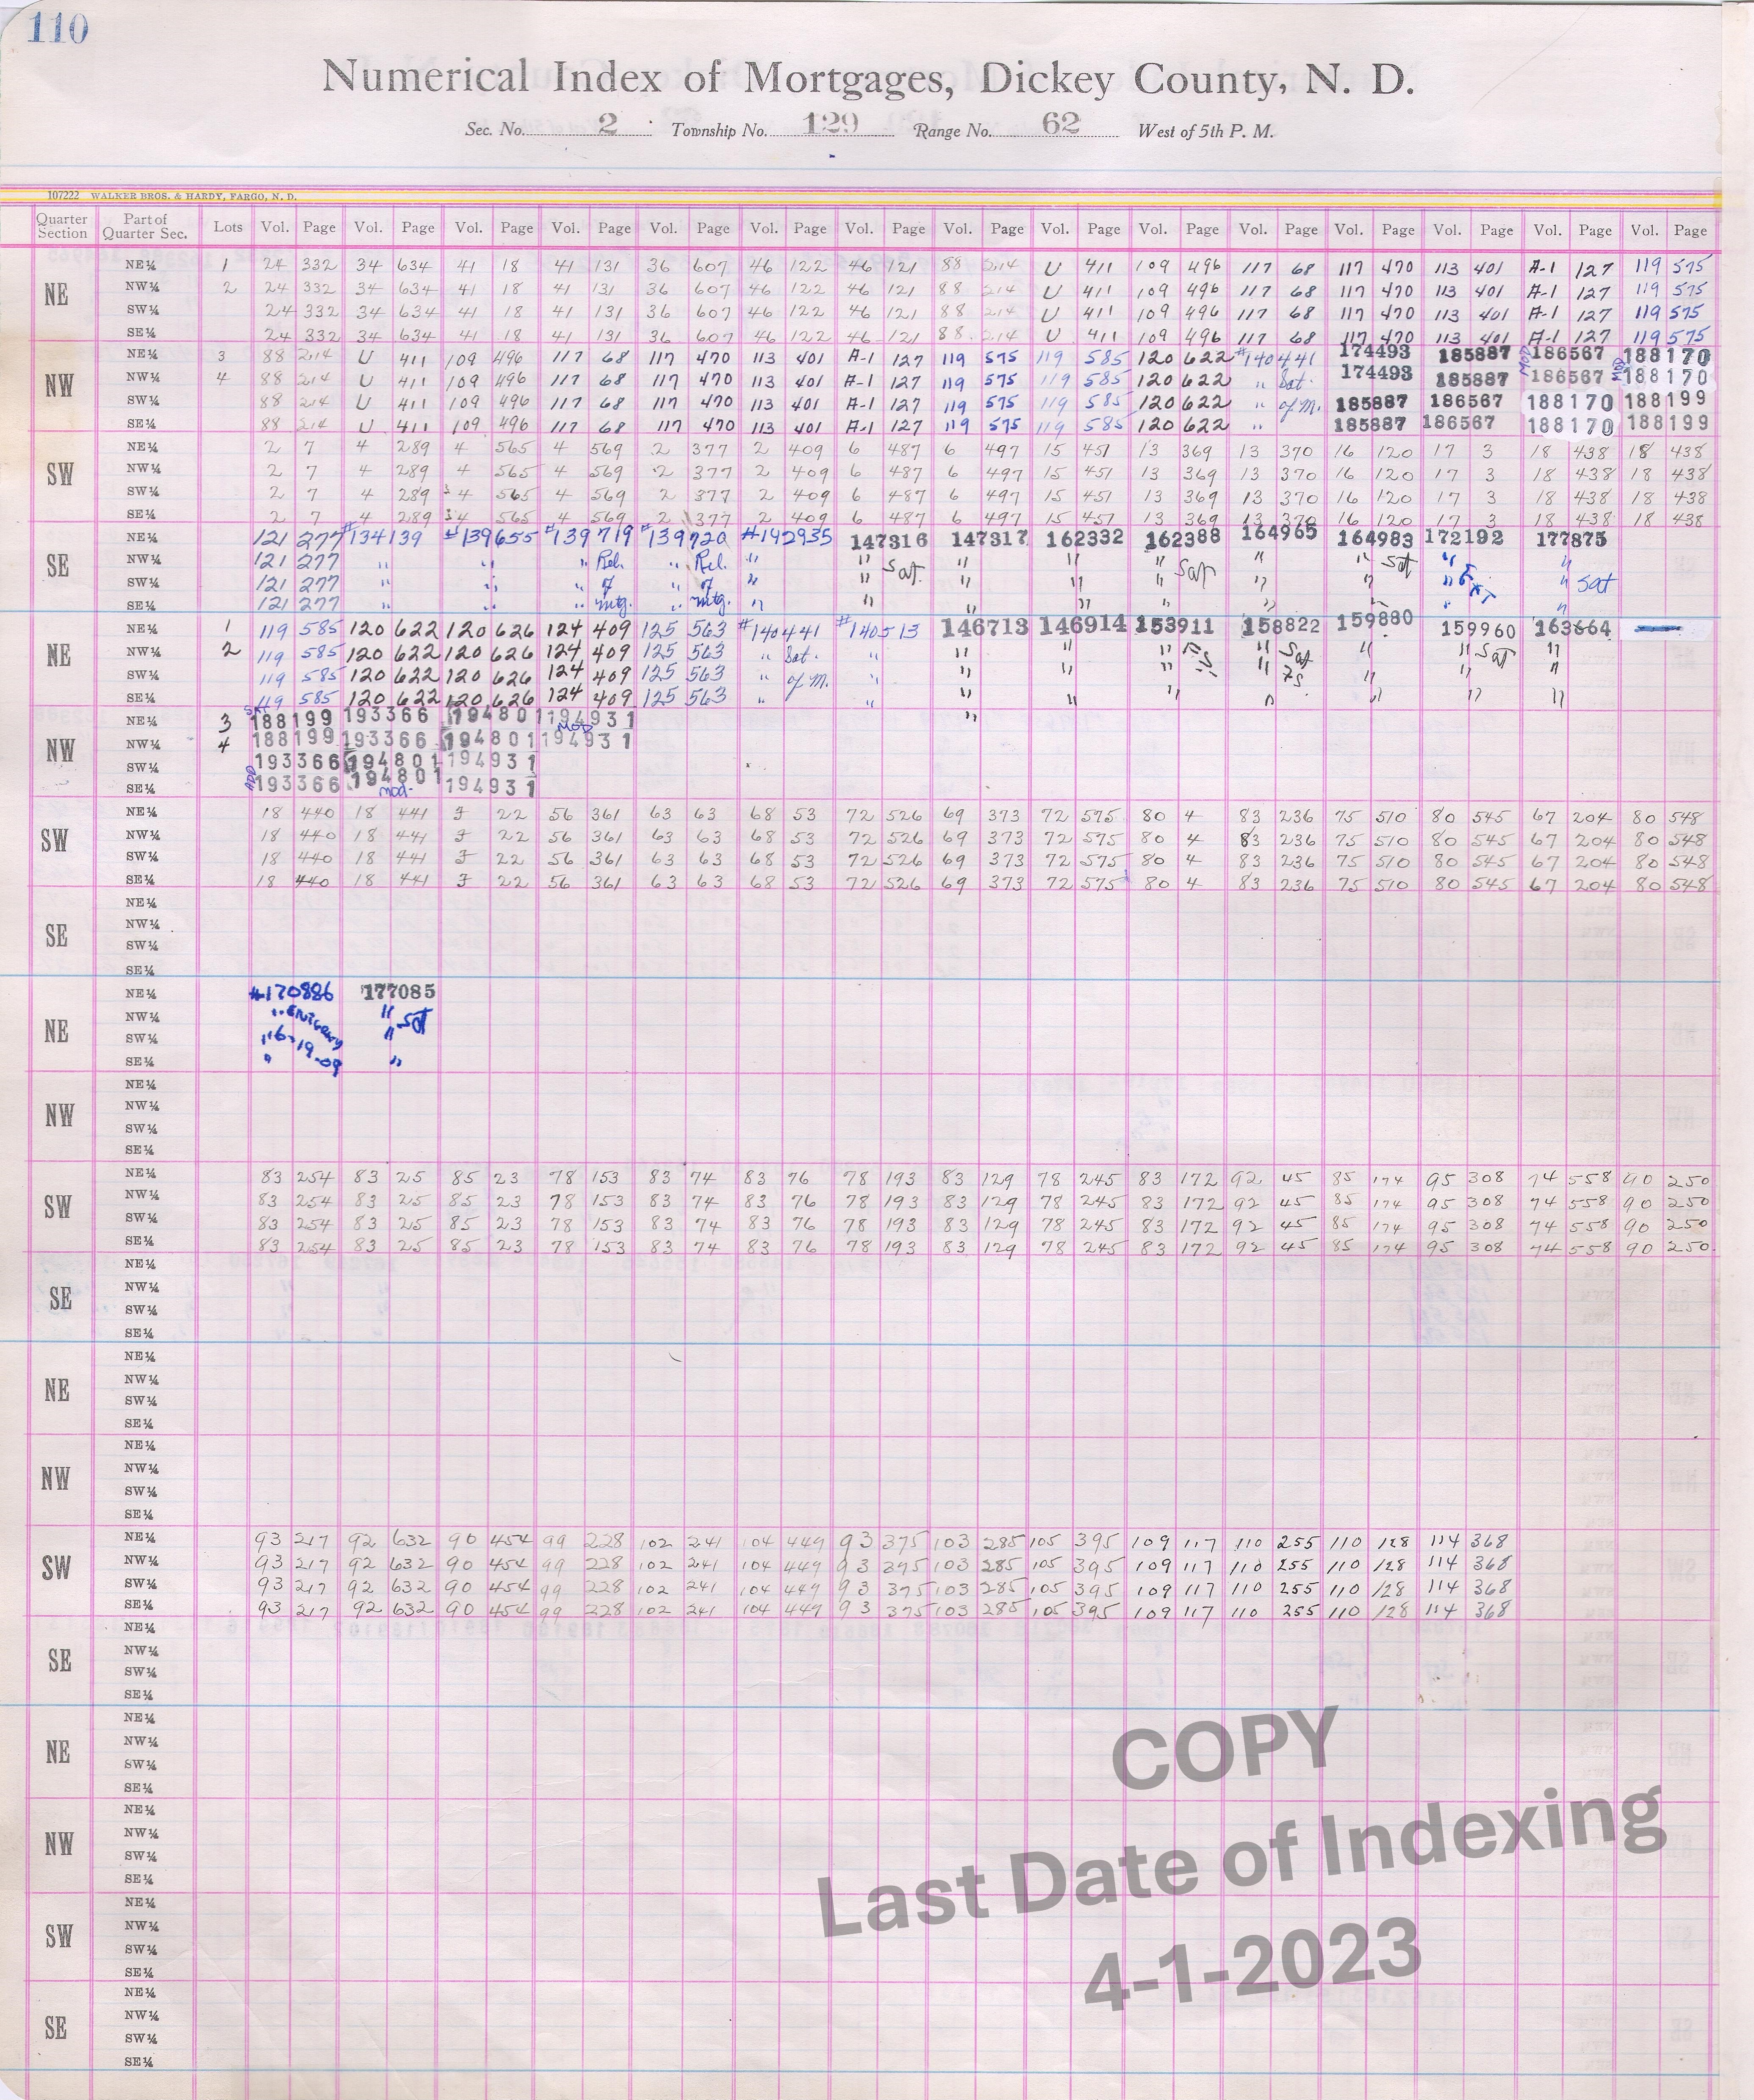 110
Numerical Index of Mortgages, Dickey County, N. D.
Sec. No. 2 Township No. 129 Range No. 62 West of 5th P. M.
107222 WALKER BROS. & HARDY, FARGO, N. D.
Quarter Section Part of Quarter Sec. Lots Vol. Page Vol. Page Vol. Page Vol. Page Vol. Page Vol. Page Vol. Page Vol. Page Vol. Page Vol. Page Vol. Page Vol. Page Vol. Page Vol. Page Vol. Page
NE
NE¼ 1 24 332 34 634 41 18 41 131 36 607 46 122 46 121 88 214 U 411 109 496 117 68 117 470 113 401 A-1 127 119 575
NW¼ 2 24 332 34 634 41 18 41 131 36 607 46 122 46 121 88 214 U 411 109 496 117 68 117 470 113 401 A-1 127 119 575
SW¼ 24 332 34 634 41 18 41 131 36 607 46 122 46 121 88 214 U 411 109 496 117 68 117 470 113 401 A-1 127 119 575
SE¼ 24 332 34 634 41 18 41 131 36 607 46 122 46 121 88 214 U 411 109 496 117 68 117 470 113 401 A-1 127 119 575
NW
NE¼ 3 88 214 U 411 109 496 117 68 117 470 113 401 A-1 127 119 575 119 585 120 622 #140441 174493 185887 MOD 186567 188170
NW¼ 4 88 214 U 411 109 496 117 68 117 470 113 401 A-1 127 119 575 119 585 120 622 " Sat. 174493 185887 186567 MOD 188170
SW¼ 88 214 U 411 109 496 117 68 117 470 113 401 A-1 127 119 575 119 585 120 622 " of M. 185887 186567 188170 188199
SE¼ 88 214 U 411 109 496 117 68 117 470 113 401 A-1 127 119 575 119 585 120 622 " 185887 186567 188170 188199
SW
NE¼ 2 7 4 289 4 565 4 569 2 377 2 409 6 487 6 497 15 451 13 369 13 370 16 120 17 3 18 438 18 438
NW¼ 2 7 4 289 4 565 4 569 2 377 2 409 6 487 6 497 15 451 13 369 13 370 16 120 17 3 18 438 18 438
SW¼ 2 7 4 289 4 565 4 569 2 377 2 409 6 487 6 497 15 451 13 369 13 370 16 120 17 3 18 438 18 438
SE¼ 2 7 4 289 4 565 4 569 2 377 2 409 6 487 6 497 15 451 13 369 13 370 16 120 17 3 18 438 18 438
SE
NE¼ 121 277 #134139 #139655 #139719 #139720 #142935 147316 147317 162332 162388 164965 164983 172192 177875
NW¼ 121 277 " " " Rel. " Rel. " " Sat. " " " Sat " " sat " "
SW¼ 121 277 " " " of " of " " " " " " " " Ext " sat
SE¼ 121 277 " " " mtg. " mtg. " " " " " " " " "
NE
NE¼ 1 119 585 120 622 120 626 124 409 125 563 #140441 #140513 146713 146914 153911 158822 159880 159960 163664
NW¼ 2 119 585 120 622 120 626 124 409 125 563 " Sat. " " " " " Sat " " Sat "
SW¼ 119 585 120 622 120 626 124 409 125 563 " of M. " " " " " " " "
SE¼ 119 585 120 622 120 626 124 409 125 563 " " " " " " " " "
NW
NE¼ 3 188199 193366 194801 194931
NW¼ 4 188199 193366 194801 MOD 194931
SW¼ 193366 194801 194931
SE¼ 193366 194801 mod- 194931
SW
NE¼ 18 440 18 441 J 22 56 361 63 63 68 53 72 526 69 373 72 575 80 4 83 236 75 510 80 545 67 204 80 548
NW¼ 18 440 18 441 J 22 56 361 63 63 68 53 72 526 69 373 72 575 80 4 83 236 75 510 80 545 67 204 80 548
SW¼ 18 440 18 441 J 22 56 361 63 63 68 53 72 526 69 373 72 575 80 4 83 236 75 510 80 545 67 204 80 548
SE¼ 18 440 18 441 J 22 56 361 63 63 68 53 72 526 69 373 72 575 80 4 83 236 75 510 80 545 67 204 80 548
SE
NE¼
NW¼
SW¼
SE¼
NE
NE¼ #170886 177085
NW¼ " "
SW¼ " 6-19-09 " sat
SE¼ " "
NW
NE¼
NW¼
SW¼
SE¼
SW
NE¼ 83 254 83 25 85 23 78 153 83 74 83 76 78 193 83 129 78 245 83 172 92 45 85 174 95 308 74 558 90 250
NW¼ 83 254 83 25 85 23 78 153 83 74 83 76 78 193 83 129 78 245 83 172 92 45 85 174 95 308 74 558 90 250
SW¼ 83 254 83 25 85 23 78 153 83 74 83 76 78 193 83 129 78 245 83 172 92 45 85 174 95 308 74 558 90 250
SE¼ 83 254 83 25 85 23 78 153 83 74 83 76 78 193 83 129 78 245 83 172 92 45 85 174 95 308 74 558 90 250
SE
NE¼
NW¼
SW¼
SE¼
NE
NE¼
NW¼
SW¼
SE¼
NW
NE¼
NW¼
SW¼
SE¼
SW
NE¼ 93 217 92 632 90 454 99 228 102 241 104 449 93 375 103 285 105 395 109 117 110 255 110 128 114 368
NW¼ 93 217 92 632 90 454 99 228 102 241 104 449 93 375 103 285 105 395 109 117 110 255 110 128 114 368
SW¼ 93 217 92 632 90 454 99 228 102 241 104 449 93 375 103 285 105 395 109 117 110 255 110 128 114 368
SE¼ 93 217 92 632 90 454 99 228 102 241 104 449 93 375 103 285 105 395 109 117 110 255 110 128 114 368
SE
NE¼
NW¼
SW¼
SE¼
NE
NE¼
NW¼
SW¼
SE¼
NW
NE¼
NW¼
SW¼
SE¼
SW
NE¼
NW¼
SW¼
SE¼
SE
NE¼
NW¼
SW¼
SE¼
COPY
Last Date of Indexing
4-1-2023